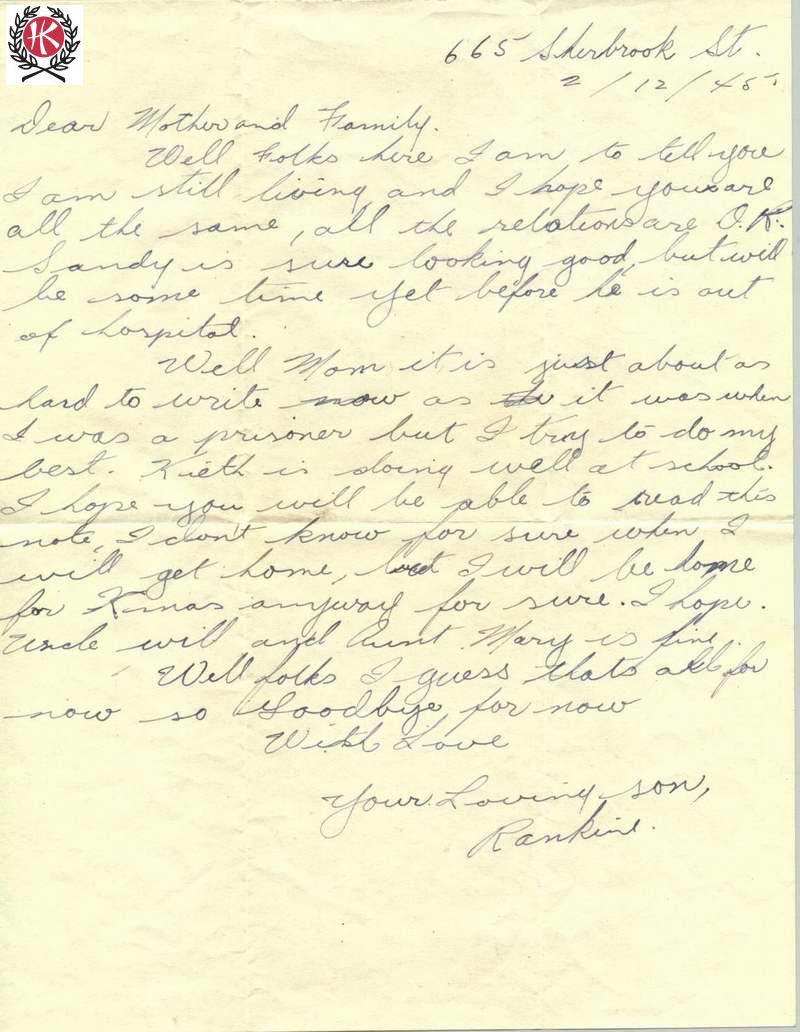 HK
665 Sherbrook St.
2/12/45.
Dear Mother and Family.
Well Folks here I am to tell you
I am still living and I hope yous are
all the same, all the relations are O.K.
Sandy is sure looking good, but will
be some time yet before he is out
of hospital.
Well Mom it is just about as
hard to write now as it was when
I was a prisoner but I try to do my
best. Kieth is doing well at school.
I hope you will be able to read this
note, I don't know for sure when I
will get home, but I will be home
for Xmas anyway for sure. I hope.
Uncle will and Aunt Mary is fine.
Well folks I guess thats all for
now so Goodbye for now
With Love
Your Loving son,
Rankine.